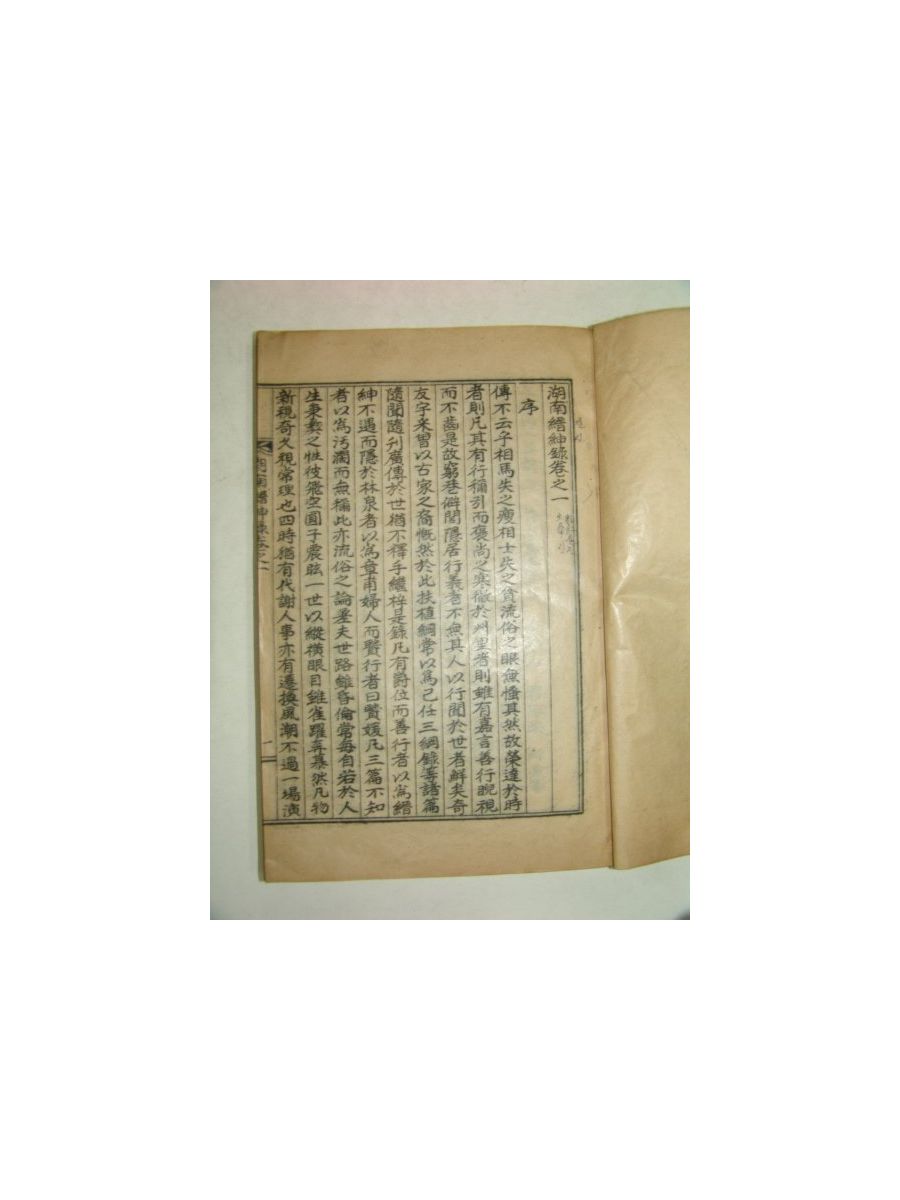 湖南縉紳錄卷之一
序
傳不云乎相馬失之瘦相士失之貧流俗之眼兪慆其然故榮達於時
者則凡其有行稱引而褒尚之寒微於州里者則雖有嘉言善行睨視
而不齒是故窮巷僻閭隱居行義者不無其人以行聞於世者鮮矣奇
友字米曾以古家之裔慨然於此扶植綱常以爲己任三綱錄等諸篇
隨聞隨刊廣傳於世猶不釋手繼梓是錄凡有爵位而善行者以爲縉
紳不遇而隱於林泉者以爲章甫婦人而賢行者曰賢媛凡三篇不知
者以爲汚瀾而無稱此亦流俗之論差夫世路雖昏倫常每自若於人
生秉彜之性彼飛空圓子震眩一世以縱橫眼目雖雀躍奔慕然凡物
新視奇久視常理也四時猶有代謝人事亦有遷換風潮不過一場演
湖南縉紳錄卷之一
一